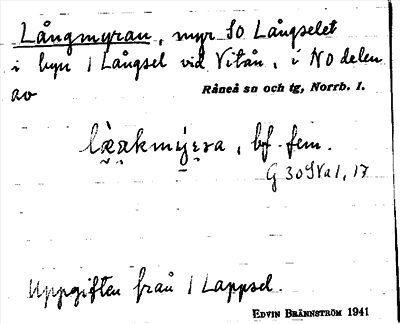 Långmyran, myr SO Långselet
i byn 1 Långsel vid Vitån, i NO delen
av Råneå sn och tg, Norrb. l.
bf. fem.
G 30SVa1, 17
Uppgiften från 1 Lappsel.
EDVIN BRÄNNSTRÖM 1941